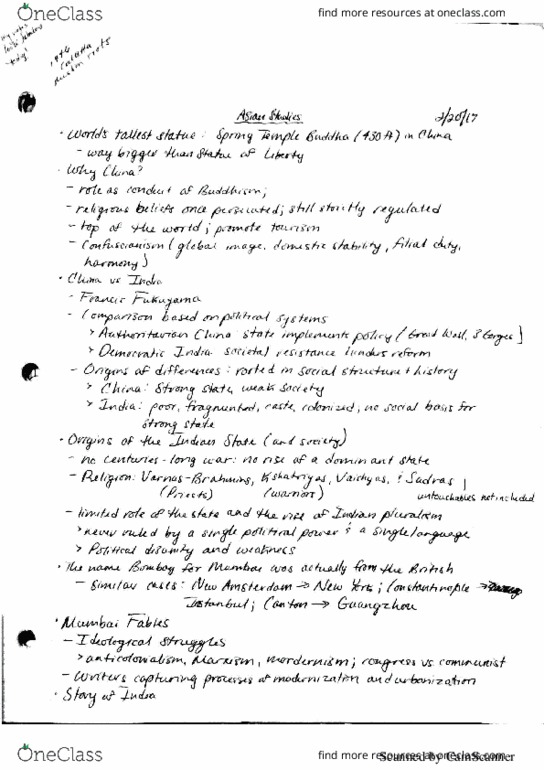 OneClass
find more resources at oneclass.com
1076
Calcutta
Muslim riots
Asian Studies
2/20/17
• World's tallest statue: Spring Temple Buddha (430 ft) in China
- way bigger than Statue of Liberty
• Why China?
- role as conduit of Buddhism;
- religious beliefs once persecuted; still strictly regulated
- top of the world; promote tourism
- Confuscianism (global image, domestic stability, filial duty,
harmony)
• China vs India
- Francis Fukuyama
- Comparison based on political systems
> Authoritarian China: state implements policy (Great Wall, 3 Gorges)
> Democratic India: societal resistance hinders reform
- Origins of differences: rooted in social structure & history
> China: Strong state, weak society
> India: poor, fragmented, caste, colonized, no social basis for
strong state
• Origins of the Indian State (and society)
- no centuries-long war: no rise of a dominant state
- Religion: Varnas-Brahmins, Kshatriyas, Vaishyas, & Sudras;
(Priests) (warriors) untouchables not included
- limited role of the state and the rise of Indian pluralism
> never ruled by a single political power & a single language
> Political disunity and weakness
• The name Bombay for Mumbai was actually from the British
- similar cases: New Amsterdam → New York; Constantinople →
Istanbul; Canton → Guangzhou
• Mumbai Fables
- Ideological struggles
> anticolonialism, Marxism, mordernism; congress vs communist
- Writers capturing processes of modernization and urbanization
• Story of India
OneClass
find more resources at oneclass.com
Scanned by CamScanner